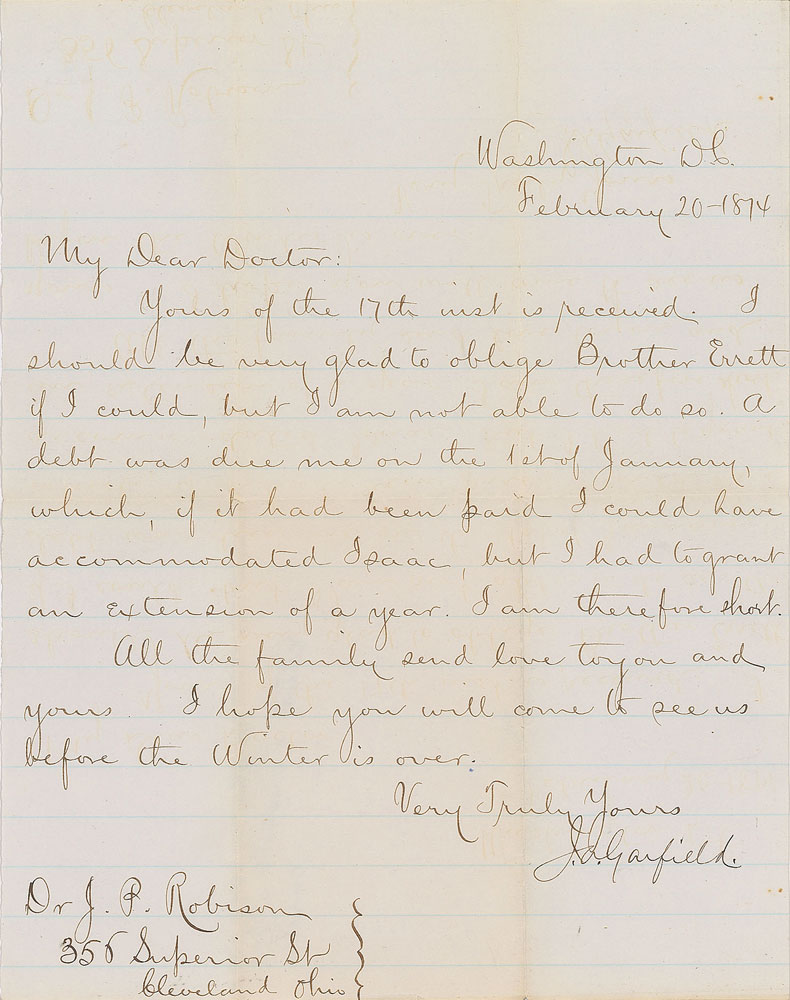 Washington D.C.
February 20-1874
My Dear Doctor:
Yours of the 17th inst is received. I
should be very glad to oblige Brother Errett
if I could, but I am not able to do so. A
debt was due me on the 1st of January,
which, if it had been paid I could have
accommodated Isaac, but I had to grant
an extension of a year. I am therefore short.
All the family send love to you and
yours. I hope you will come to see us
before the Winter is over.
Very Truly Yours
J.A. Garfield.
Dr J. P. Robison
Superior St
Cleveland Ohio